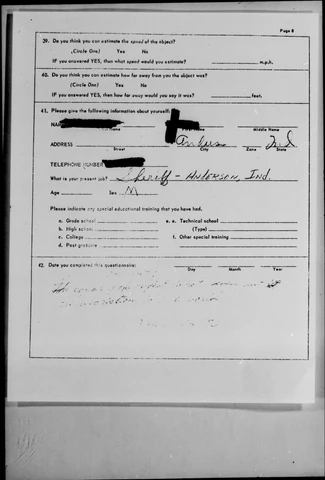 Page 8
39. Do you think you can estimate the speed of the object?
(Circle One) Yes No
IF you answered YES, then what speed would you estimate? m.p.h.
40. Do you think you can estimate how far away from you the object was?
(Circle One) Yes No
IF you answered YES, then how far away would you say it was? feet.
41. Please give the following information about yourself:
NA
Name Middle Name
ADDRESS Ind
Street City Zone State
TELEPHONE NUMBER
What is your present job? Sheriff - ANDERSON, IND.
Age Sex M
Please indicate any special educational training that you have had.
a. Grade school e. Technical school
b. High school (Type)
c. College f. Other special training
d. Post graduate
42. Date you completed this questionnaire:
Day Month Year